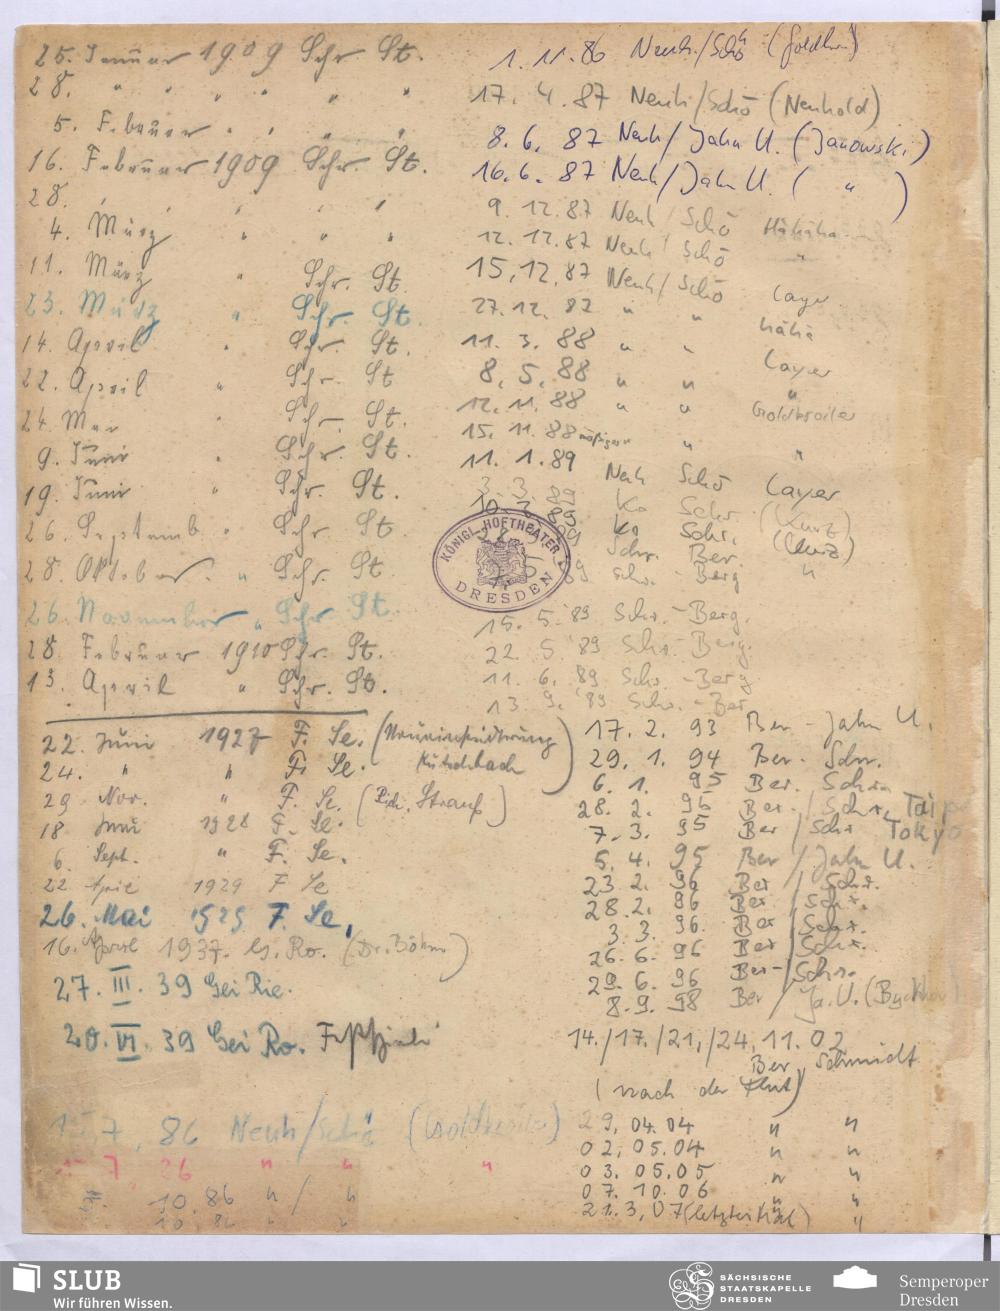 25. Januar 1909 Schr. St.
28. " " " " "
5. Februar " " " "
16. Februar 1909 Schr. St.
28. " " " "
4. März " " "
11. März " Schr. St.
23. März " Schr. St.
14. April " Schr. St.
22. April " Schr. St
24. Mai " Schr. St.
9. Juni " Schr. St.
19. Juni " Schr. St.
26. September " Schr. St
28. Oktober " Schr. St.
26. November " Schr St.
28. Februar 1910 Schr. St.
13. April " Schr. St.
22. Juni 1927 F. Se. (Neueinstudierung
24. " " F. Se. Kutschbach)
29 Nov. " F. Se. (Rich. Strauß)
18 Juni 1928 F. Se.
6. Sept. " F. Se.
22 April 1929 F Se
26. Mai 1929 F. Se.
16. April 1937. G. Ro. (Dr. Böhm)
27. III. 39 Gei Rie.
20. VI. 39 Gei Ro. Festspiele
7. 86 Neuh/Schö (Goldbroiler)
7. 86 " " "
10.86 " / "
10.86 " "
1. 11. 86 Neuh./Schö
17. 4. 87 Neuh/Schö (Neuhold)
8. 6. 87 Neuh/Jahn U. (Janowski)
16. 6. 87 Neuh/Jahn U. ( " )
9. 12. 87 Neuh / Schö
12. 12. 87 Neuh / Schö "
15. 12. 87 Neuh/ Schö Layer
27. 12. 87 " " Hähä
11. 3. 88 " " Layer
8. 5. 88 " " "
12. 11. 88 " " Goldbroiler
15. 11. 88 " "
11. 1. 89 Neuh Schö Layer
3. 3. 89 Ko Schr (Kurz)
10. 3. 89 Ko Schr. (Kurz)
Schr. Ber. "
Schr. - Berg
15. 5. 89 Schr. - Berg.
22. 5. 89 Schr. - Berg.
11. 6. 89 Schr. - Berg
13. 9. 89 Schr. - Ber
17. 2. 93 Ber - Jahn U.
29. 1. 94 Ber. - Schr.
6. 1. 95 Ber. - Schr.
28. 2. 95 Ber. / Schr.
7. 3. 95 Ber / Schr Tokyo
5. 4. 95 Ber / Jahn U.
23. 2. 96 Ber / Schr.
28. 2. 96 Ber / Schr.
3. 3. 96. Ber / Schr.
26. 6. 96 Ber / Schr.
29. 6. 96 Ber - / Schr.
8. 9. 98 Ber / Ja. U.
14./17./21./24. 11. 02
Ber, Schmidt
(nach der Flut)
29. 04. 04 " "
02. 05. 04 " "
03. 05. 05 " "
07. 10. 06 " "
21. 3. 07 (letztes Mal) "
KÖNIGL. HOFTHEATER
DRESDEN
SLUB
Wir führen Wissen.
SÄCHSISCHE
STAATSKAPELLE
DRESDEN
Semperoper
Dresden